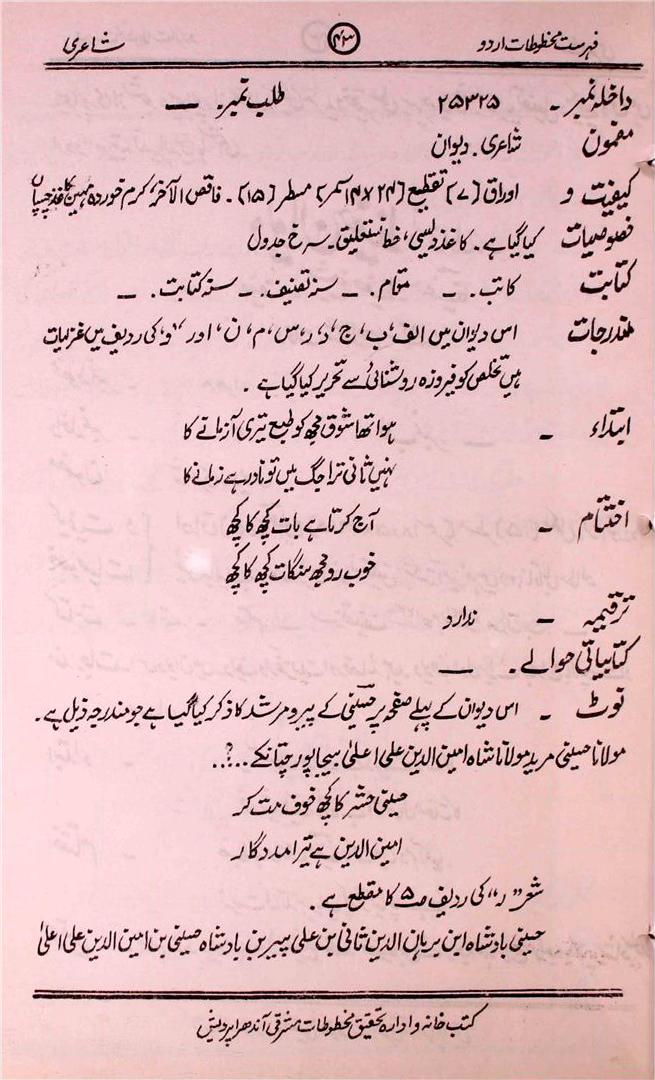 فہرست مخطوطات اردو ۴۳ شاعری
داخلہ نمبر ۔ ۲۵۳۲۵ طلب نمبر ۔ —
مضمون شاعری ۔ دیوان
کیفیت و اوراق [۷] تقطیع [۲۴ × ۱۴ سمر] مسطر [۱۵] ۔ ناقص الآخر، کرم خوردہ مہین کاغذ چسپاں
خصوصیات کیا گیا ہے ۔ کاغذ دیسی، خط نستعلیق ۔ سرخ جدول
کتابت کاتب ۔ — مقام ۔ — سنہ تصنیف ۔ — سنہ کتابت ۔ —
مندرجات اس دیوان میں الف، ب، ج، د، ر، س، م، ن، اور "و" کی ردیف میں غزلیات
ہیں تخلص کو فیروزہ روشنائی سے تحریر کیا گیا ہے ۔
ابتداء ۔ ہوا تھا شوق مجھ کو طبع تیری آزمانے کا
نہیں ثانی ترا جگ میں تو نادر ہے زمانے کا
اختتام ۔ آج کرتا ہے بات کچھ کا کچھ
خوب رو مجھ سنگات کچھ کا کچھ
ترقیمہ ۔ ندارد
کتابیاتی حوالے ۔ —
نوٹ ۔ اس دیوان کے پہلے صفحہ پر حسینی کے پیر و مرشد کا ذکر کیا گیا ہے جو مندرجہ ذیل ہے ۔
مولانا حسینی مرید مولانا شاہ امین الدین علی اعلیٰ بیجاپور ...؟..
حسینی حشر کا کچھ خوف مت کر
امین الدین ہے تیرا مددگار
شعر "ر" کی ردیف صـ ۵ کا مقطع ہے ۔
حسینی بادشاہ ابن برہان الدین ثانی بن علی پیر بن بادشاہ حسینی بن امین الدین علی اعلیٰ
کتب خانہ و ادارہ تحقیق مخطوطات مشرقی آندھرا پردیش